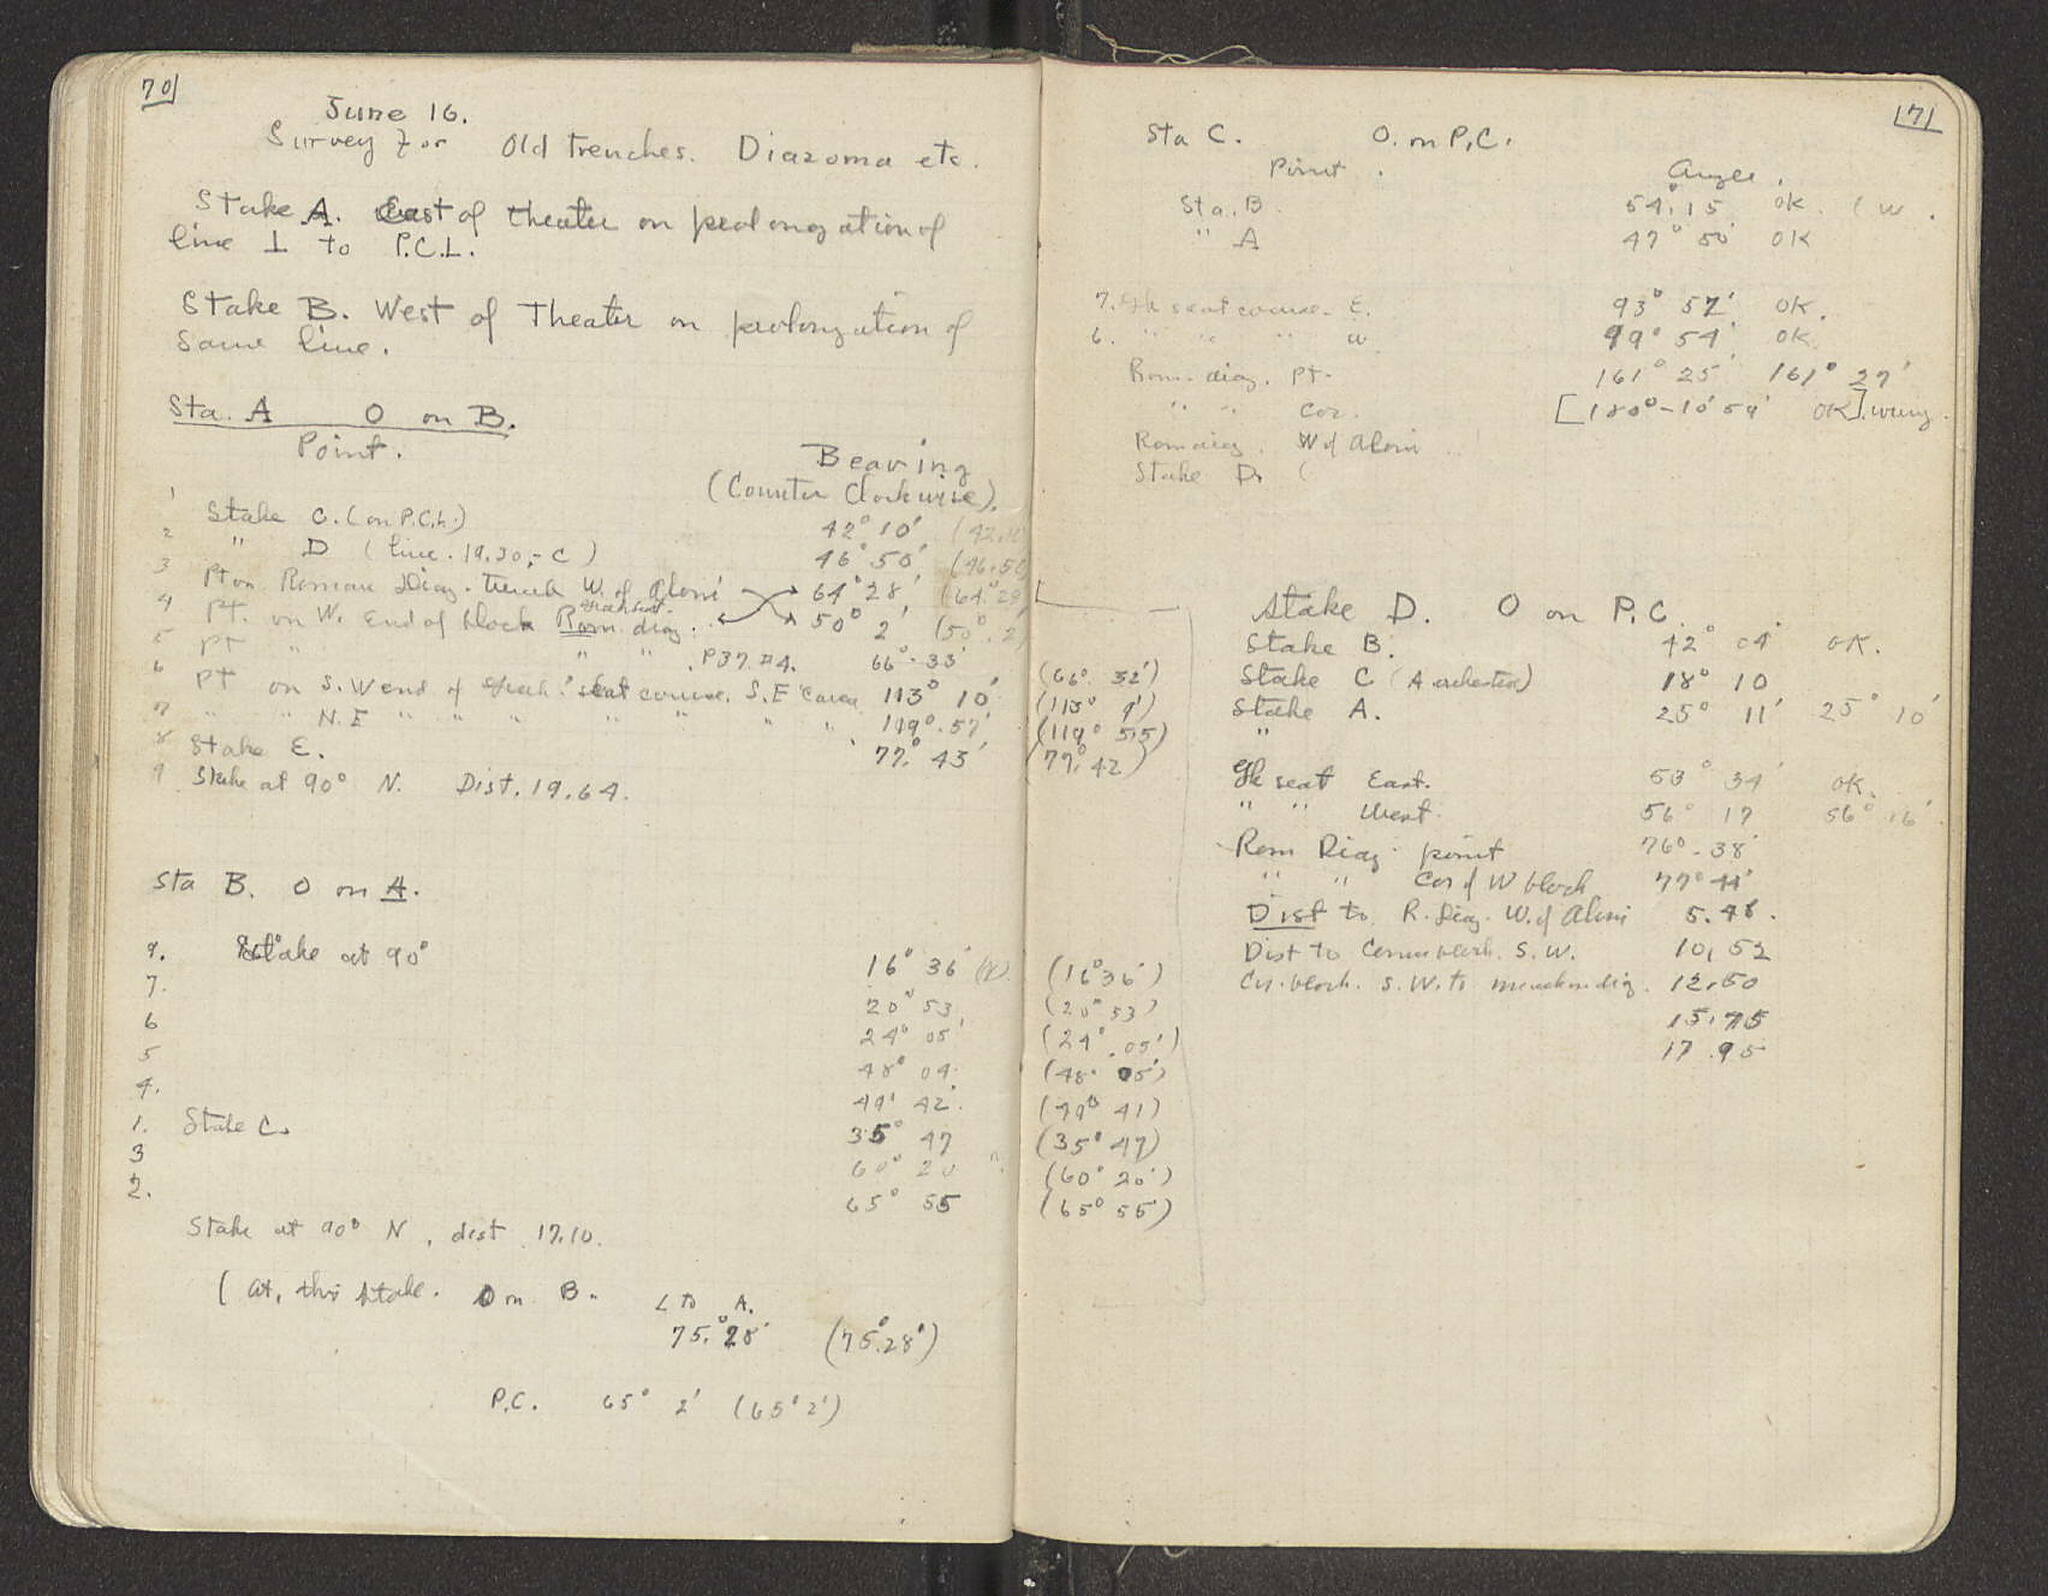 70
June 16.
Survey for Old trenches. Diazoma etc.
Stake A. East of theater on prolongation of
line ⊥ to P.C.L.
Stake B. West of Theater on prolongation of
same line.
Sta. A O on B.
Point. Bearing
(Counter Clockwise).
1 Stake C. (on P.C.L.) 42° 10' (42.10
2 " D (line. 19.30,- C) 46° 50' (46.50
3 Pt on Roman Diaz. trench W. of Aloni 64° 28' (64°.29'
4 Pt. on W. End of block Rom. diaz. 50° 2' (50°. 2')
5 Pt " " " P37 #4. 66°. 33' (66°. 32')
6 Pt on S. W end of Greek seat course. S. E Cavea 113° 10' (113° 9')
7 " " N. E " " " " " " " 119°. 57' (119° 55)
8 Stake E. 77°. 43' (77°. 42)
9 Stake at 90° N. Dist. 19.64.
Sta B. O on A.
9. Stake at 90° 16° 36' (16° 36')
7. 20° 53, (20° 53)
6 24° 05' (24°. 05')
5 48° 04 (48. 05')
4. 49° 42'. (49° 41)
1. Stake C. 35° 47 (35° 47)
3 60° 20 (60° 20')
2. 65° 55 (65° 55')
Stake at 90° N, dist. 17.10.
(At, this stake. O on B. ∠ to A.
75.° 28' (75°.28')
P.C. 65° 2' (65° 2')
171
Sta C. O. on P.C.
Point. Angle.
Sta. B. 54°. 15 OK. (W.
" A 47° 50' OK
7. Gk seat course. E. 93° 57' OK.
6. " " " W 99° 54' OK
Rom. diaz. Pt. 161° 25' 161° 27'
" " Cor. [180° - 10' 59' OK]. wrong.
Rom diaz. W of Aloni
Stake D. (
Stake D. O on P.C.
Stake B. 42° 04' OK.
Stake C (A orchestra) 18° 10
Stake A. 25° 11' 25° 10'
"
Gk seat East. 53° 34' OK.
" " West. 56° 17 56° 16'
Rom Diaz. point 76°. 38'
" " Cor of W block 77° 41'
Dist to R. Diaz. W. of Aloni 5.48.
Dist to Corner block. S. W. 10,52
Cor. block. S. W. to 12.50
15.75
17.95